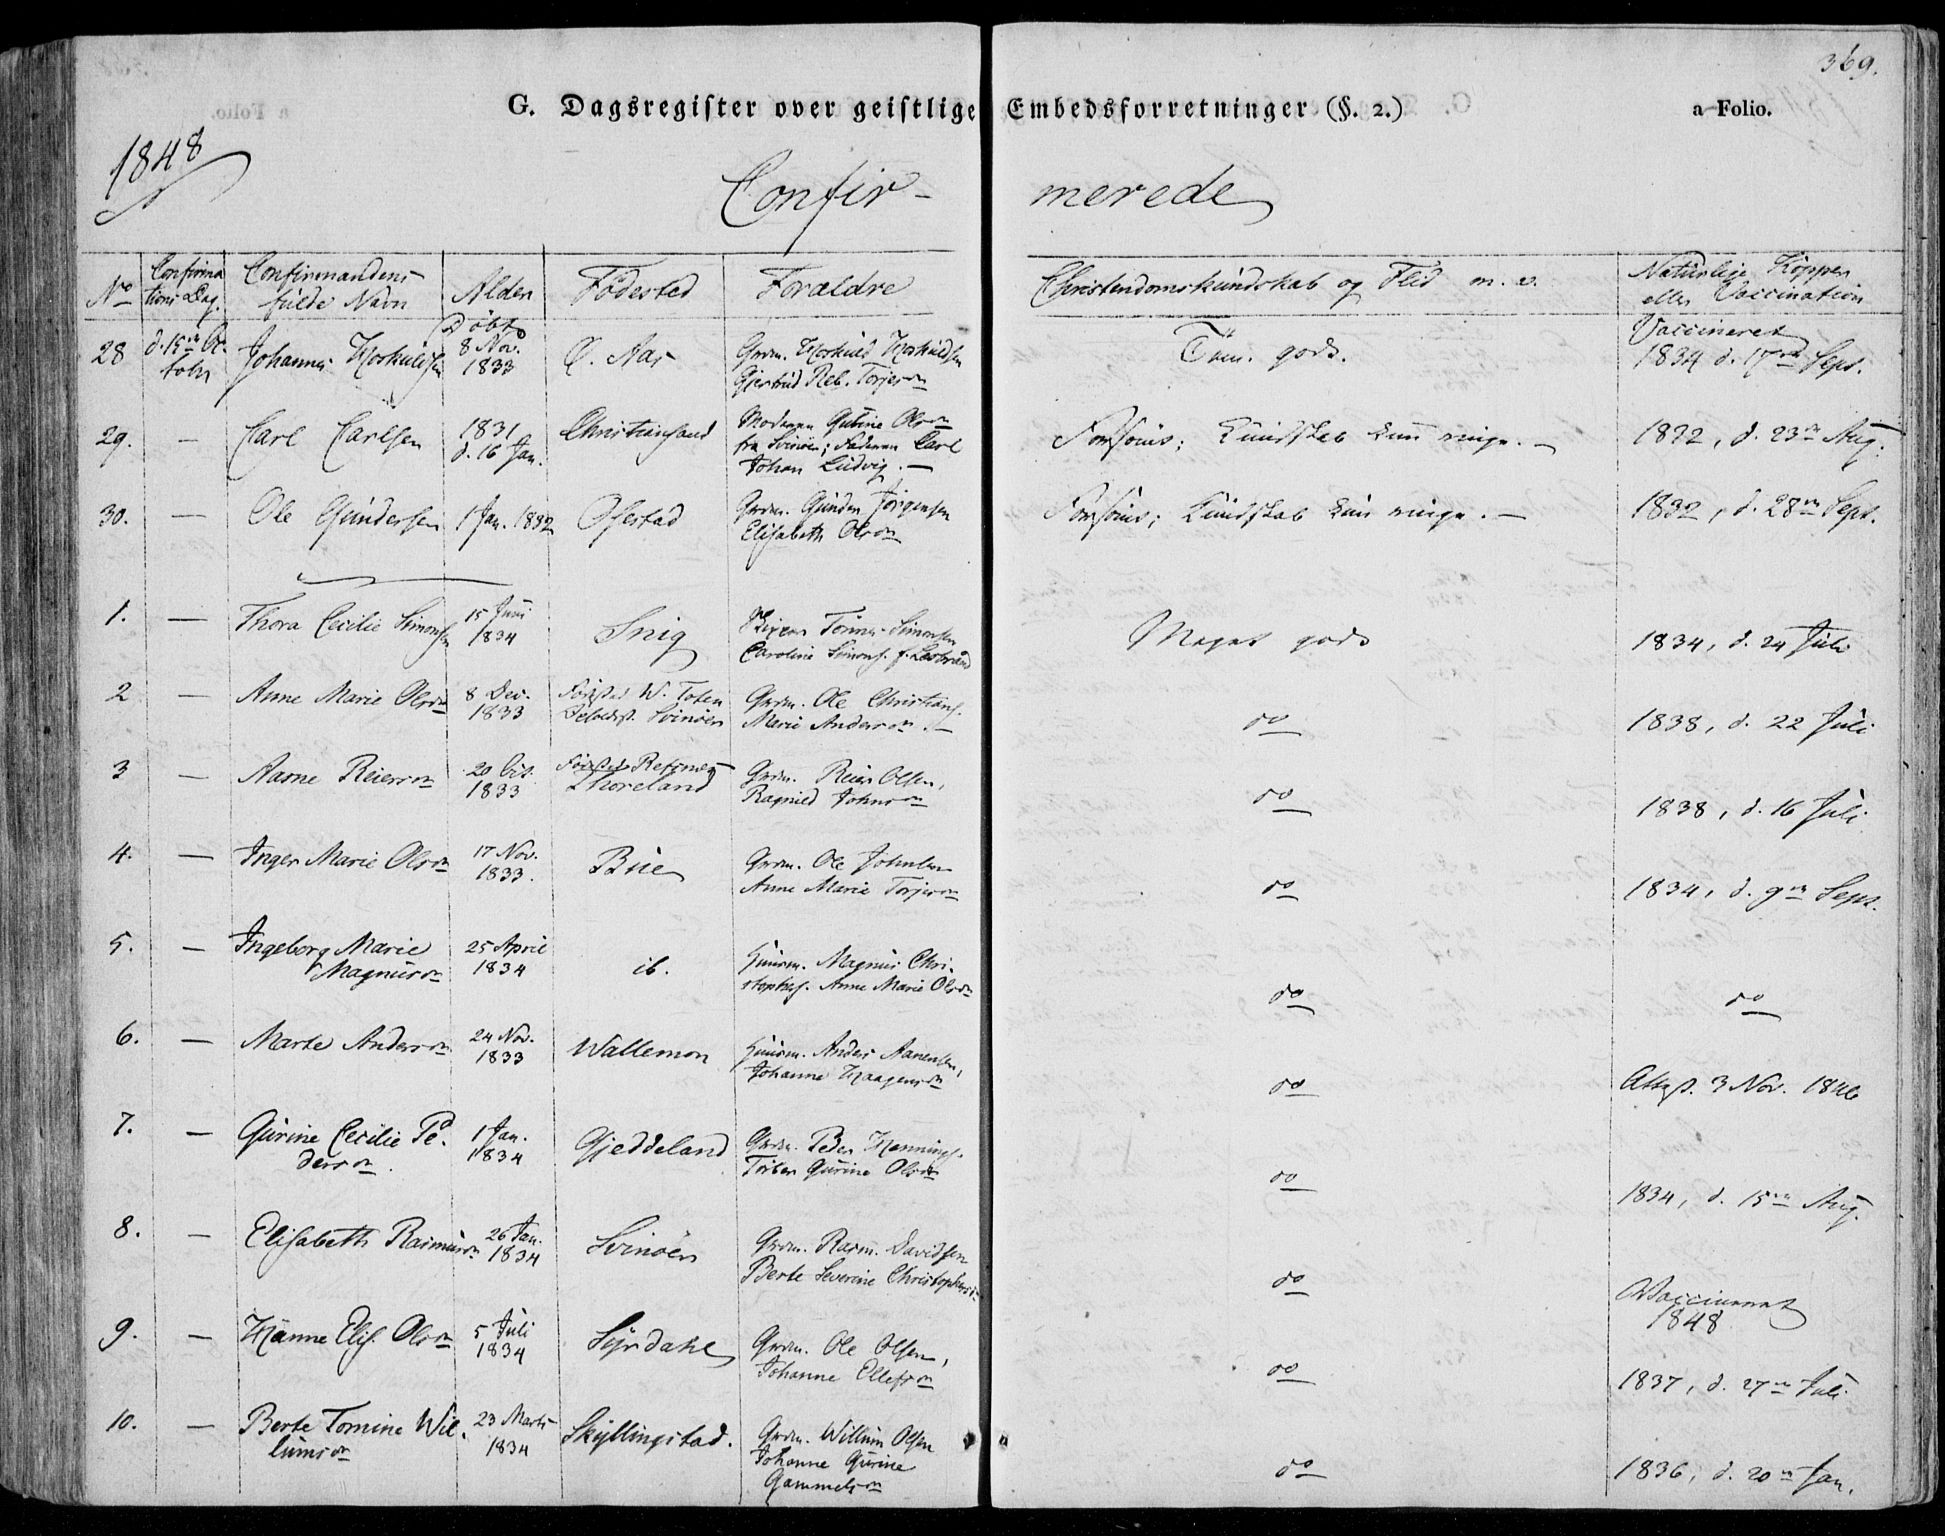 369.
G. Dagsregister over geistlige Embedsforretninger (§. 2.) a Folio.
1848
Confir- merede
No Confirmations Dag. Confirmandens fulde Navn Alder Fødested Forældre Christendomskundskab og Flid m. v. Naturlige Kopper eller Vaccination
28 d. 15de October Johannes Hoskuldsen Døbt 8 Nov. 1833 Ø. Aas Grdm. Hoskuld Hoskuldsen Gjertrud Reb. Torjesdn Tem. godt. Vaccineret 1834 d. 17de Sept.
29. — Carl Carlsen 1831 d. 16 Jan. Christiansand Moderen Gurine Olsdn fra Svinøen; Faderen Carl Johan Ludvig. — Kundskab kun ringe. — 1832, d. 23de Aug.
30. — Ole Gundersen 1 Jan. 1832 Ofestad Grdm. Gunder Jörgensen Elisabeth Olsdn Kundskab kun ringe. — 1832, d. 28de Sept.
1. — Thora Cecilie Simonsen 15 Juni 1834 Snig Skipper Tönnes Simonsen Caroline Simons. f. Meget godt 1834, d. 24 Juli
2 — Anne Marie Olsdn 8 Dec. 1833 Födested W. Toten Svinöen Grdm. Ole Christians. Marie Andersdn. — do 1838, d. 22 Juli
3 — Aasne Reiersdn 20 Oct. 1833 Födested Thoreland Grdm. Reier Olsen, Ragnild Johnsdn do 1838, d. 16 Juli
4. — Inger Marie Olsdn 17 Nov. 1833. Bue Grdm. Ole Johnsen Anne Marie Torjesdn do 1834, d. 9de Sept.
5. — Ingeborg Marie Magnusdn 25 April 1834 ib. Huusm. Magnus Christophs. Anne Marie Olsdn do do
6. — Marte Andersdn 24 Nov. 1833 Wallemon Huusm. Anders Aanensen, Johanne Haagensdn do Attest. 3 Nov. 1846
7. — Gurine Cecilie Pedersdn. 1 Jan. 1834 Gjeddeland Grdm. Peder Hennings. Torber Gurine Olsdn do 1834, d. 15de Aug.
8. — Elisabeth Rasmusdn 26 Jan. 1834 Svinöen Grdm. Rasm. Davidsen Berte Severine Christophersdn do Vaccineret 1848
9. — Hanne Elis. Olsdn 5 Juli 1834 Syrdahl Grdm. Ole Olsen, Johanne Ellefsdn do 1837, d. 27de Juli
10. — Berte Tomine Willumsdn 23 Marts 1834 Skyllingstad. Grdm. Willum Olsen Johanne Gurine Gammelsdn do 1836, d. 20de Jan.